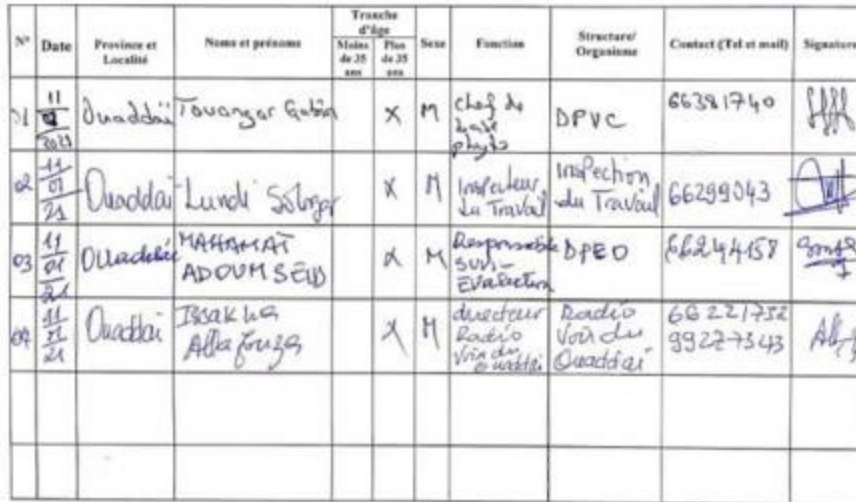 N° Date Province et Localité Noms et prénoms Tranche d'âge Moins de 35 ans Plus de 35 ans Sexe Fonction Structure/ Organisme Contact (Tel et mail) Signature
01 11 2021 Ouaddaï Touangar X M chef de base phyto DPVC 66381740
02 11 01 21 Ouaddaï Lundi X M Inspecteur du Travail Inspection du Travail 66299043
03 11 01 21 Ouaddaï MAHAMAT ADOUM SEID X M Responsable suivi- Evaluation DPEO 66244158
04 11 01 21 Ouaddaï Issakha Alla X M directeur Radio Voix du Ouaddaï Radio Voix du Ouaddaï 66221732 99227343